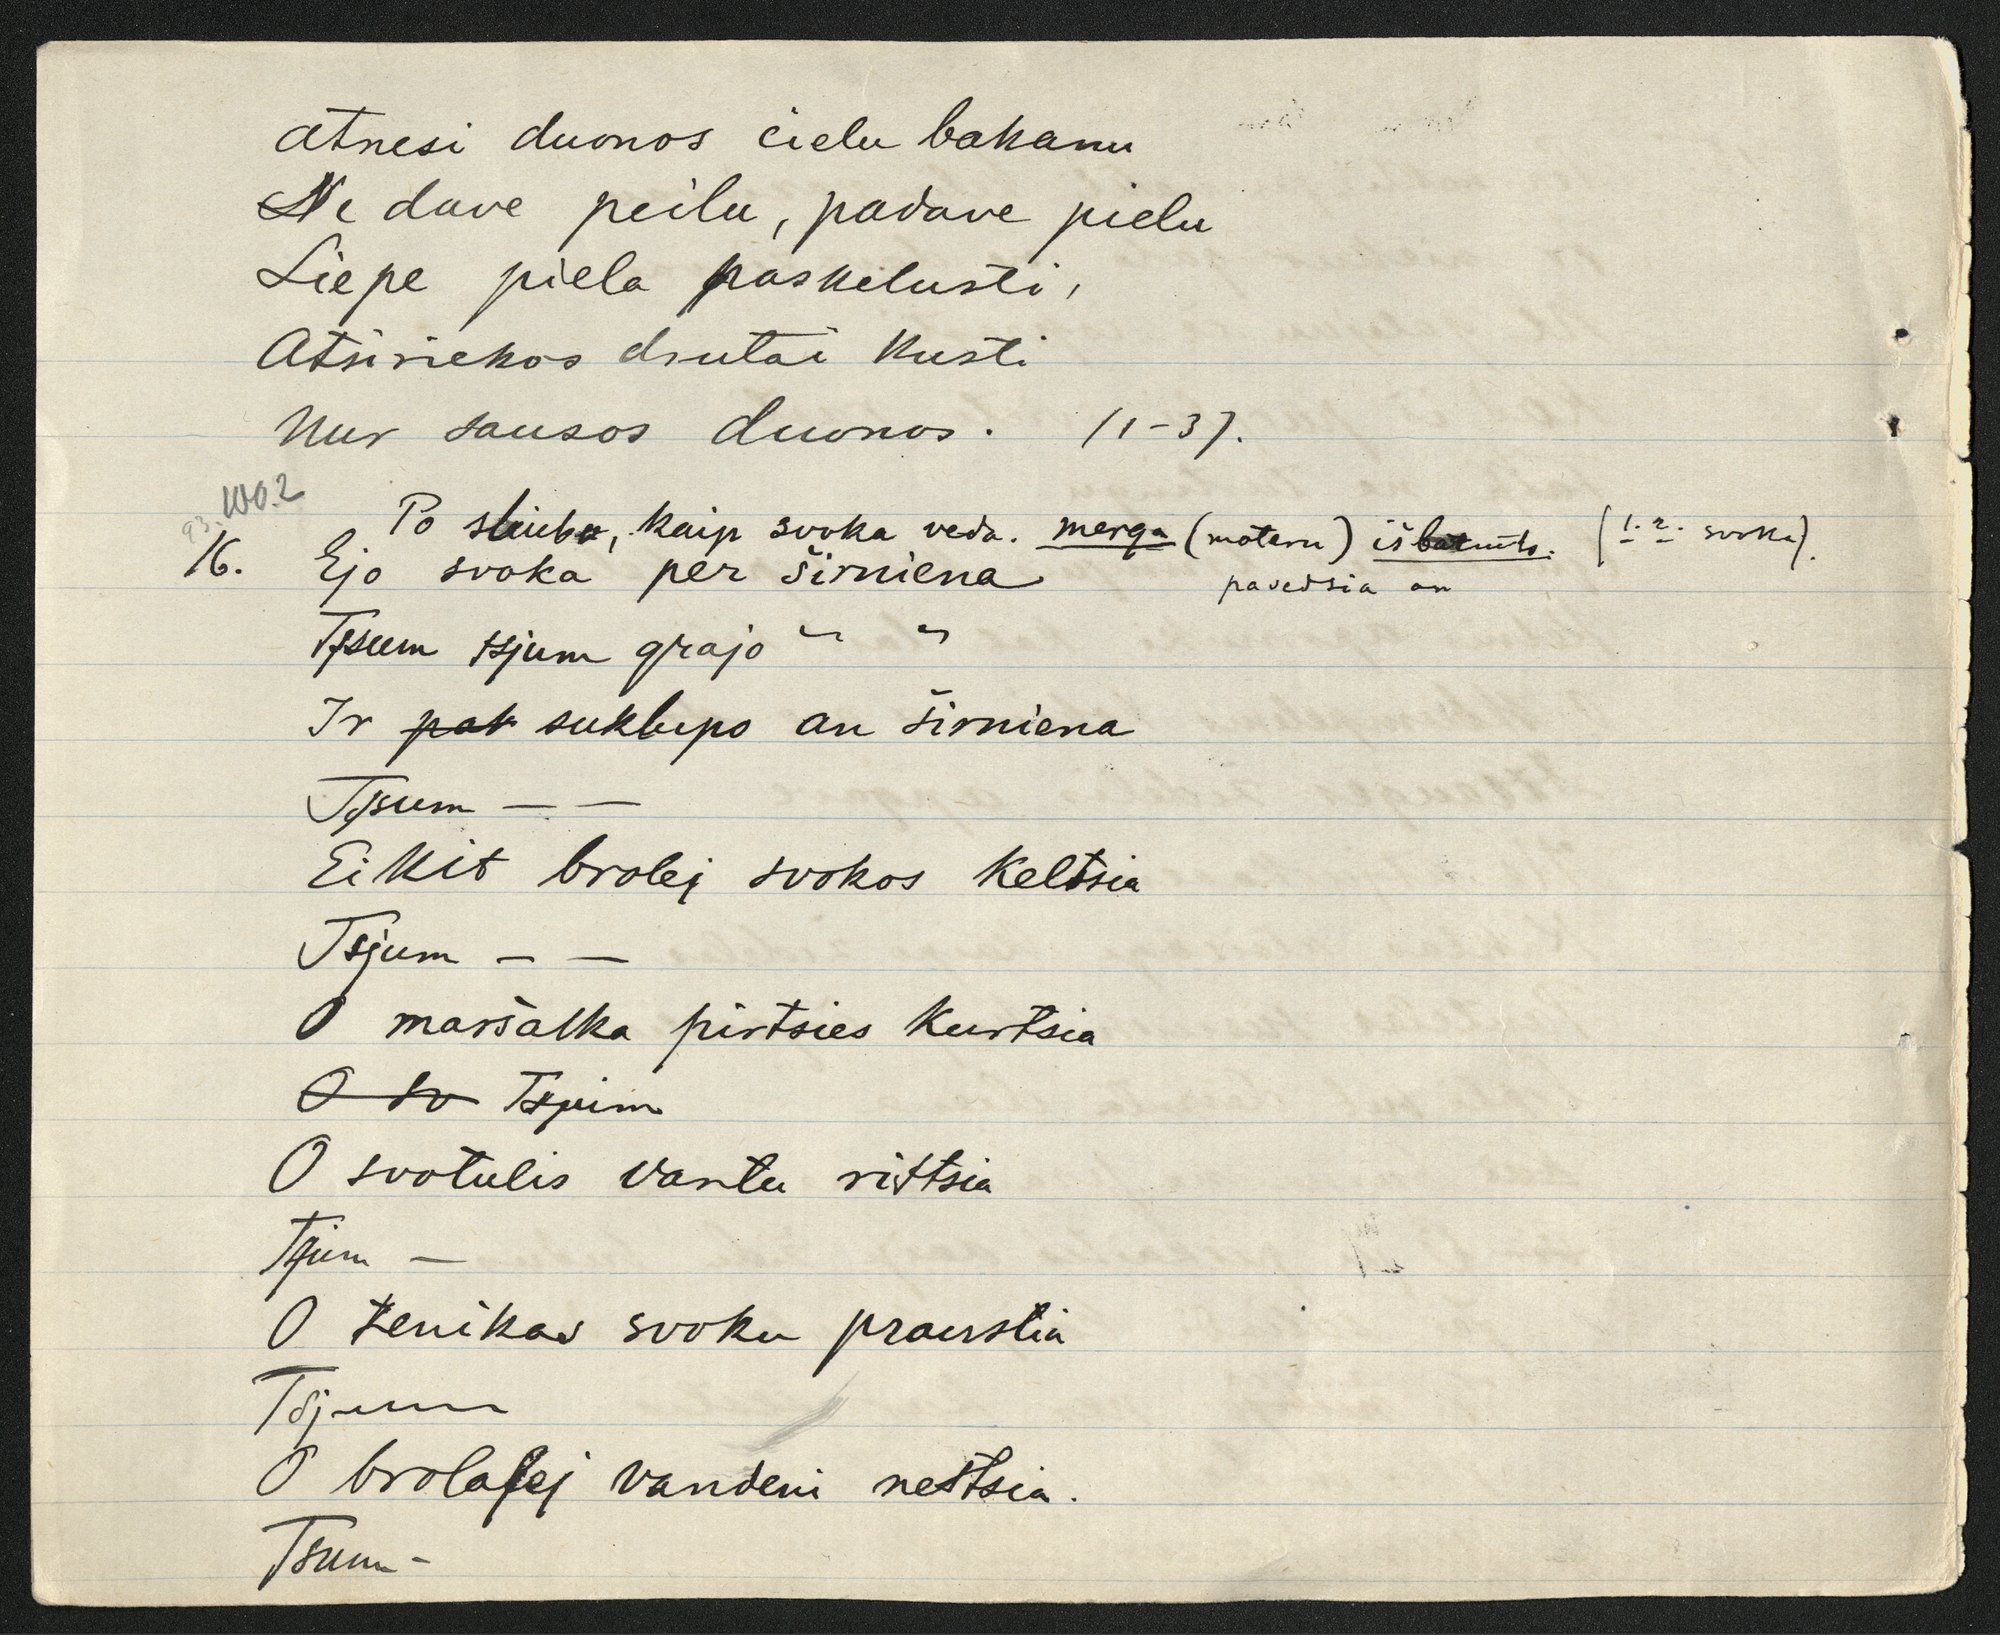 Atnesi duonos cielu bakanu
Ne dave peilu, padave pielu
Liepe piela paskelusti,
Atsiriekos drutai kusti
Nur sausos duonos. (1-3).
93. 100.2
Po sliubu, kaip svoka veda. merga (moteru)
(1. 2. svoka).
16. Ejo svoka per širniena
pavedsia an
Tsjum tsjum grajo " "
Ir pat suklupo an širniena
Tsjum — —
Eikit brolej svokos keltsia
Tsjum — —
O maršalka pirtsies kurtsia
O sv Tsjum
O svotulis vantu rittsia
Tsjum —
O ženikas svoku praustia
Tsjum
O brolalej vandeni nestsia.
Tsum -